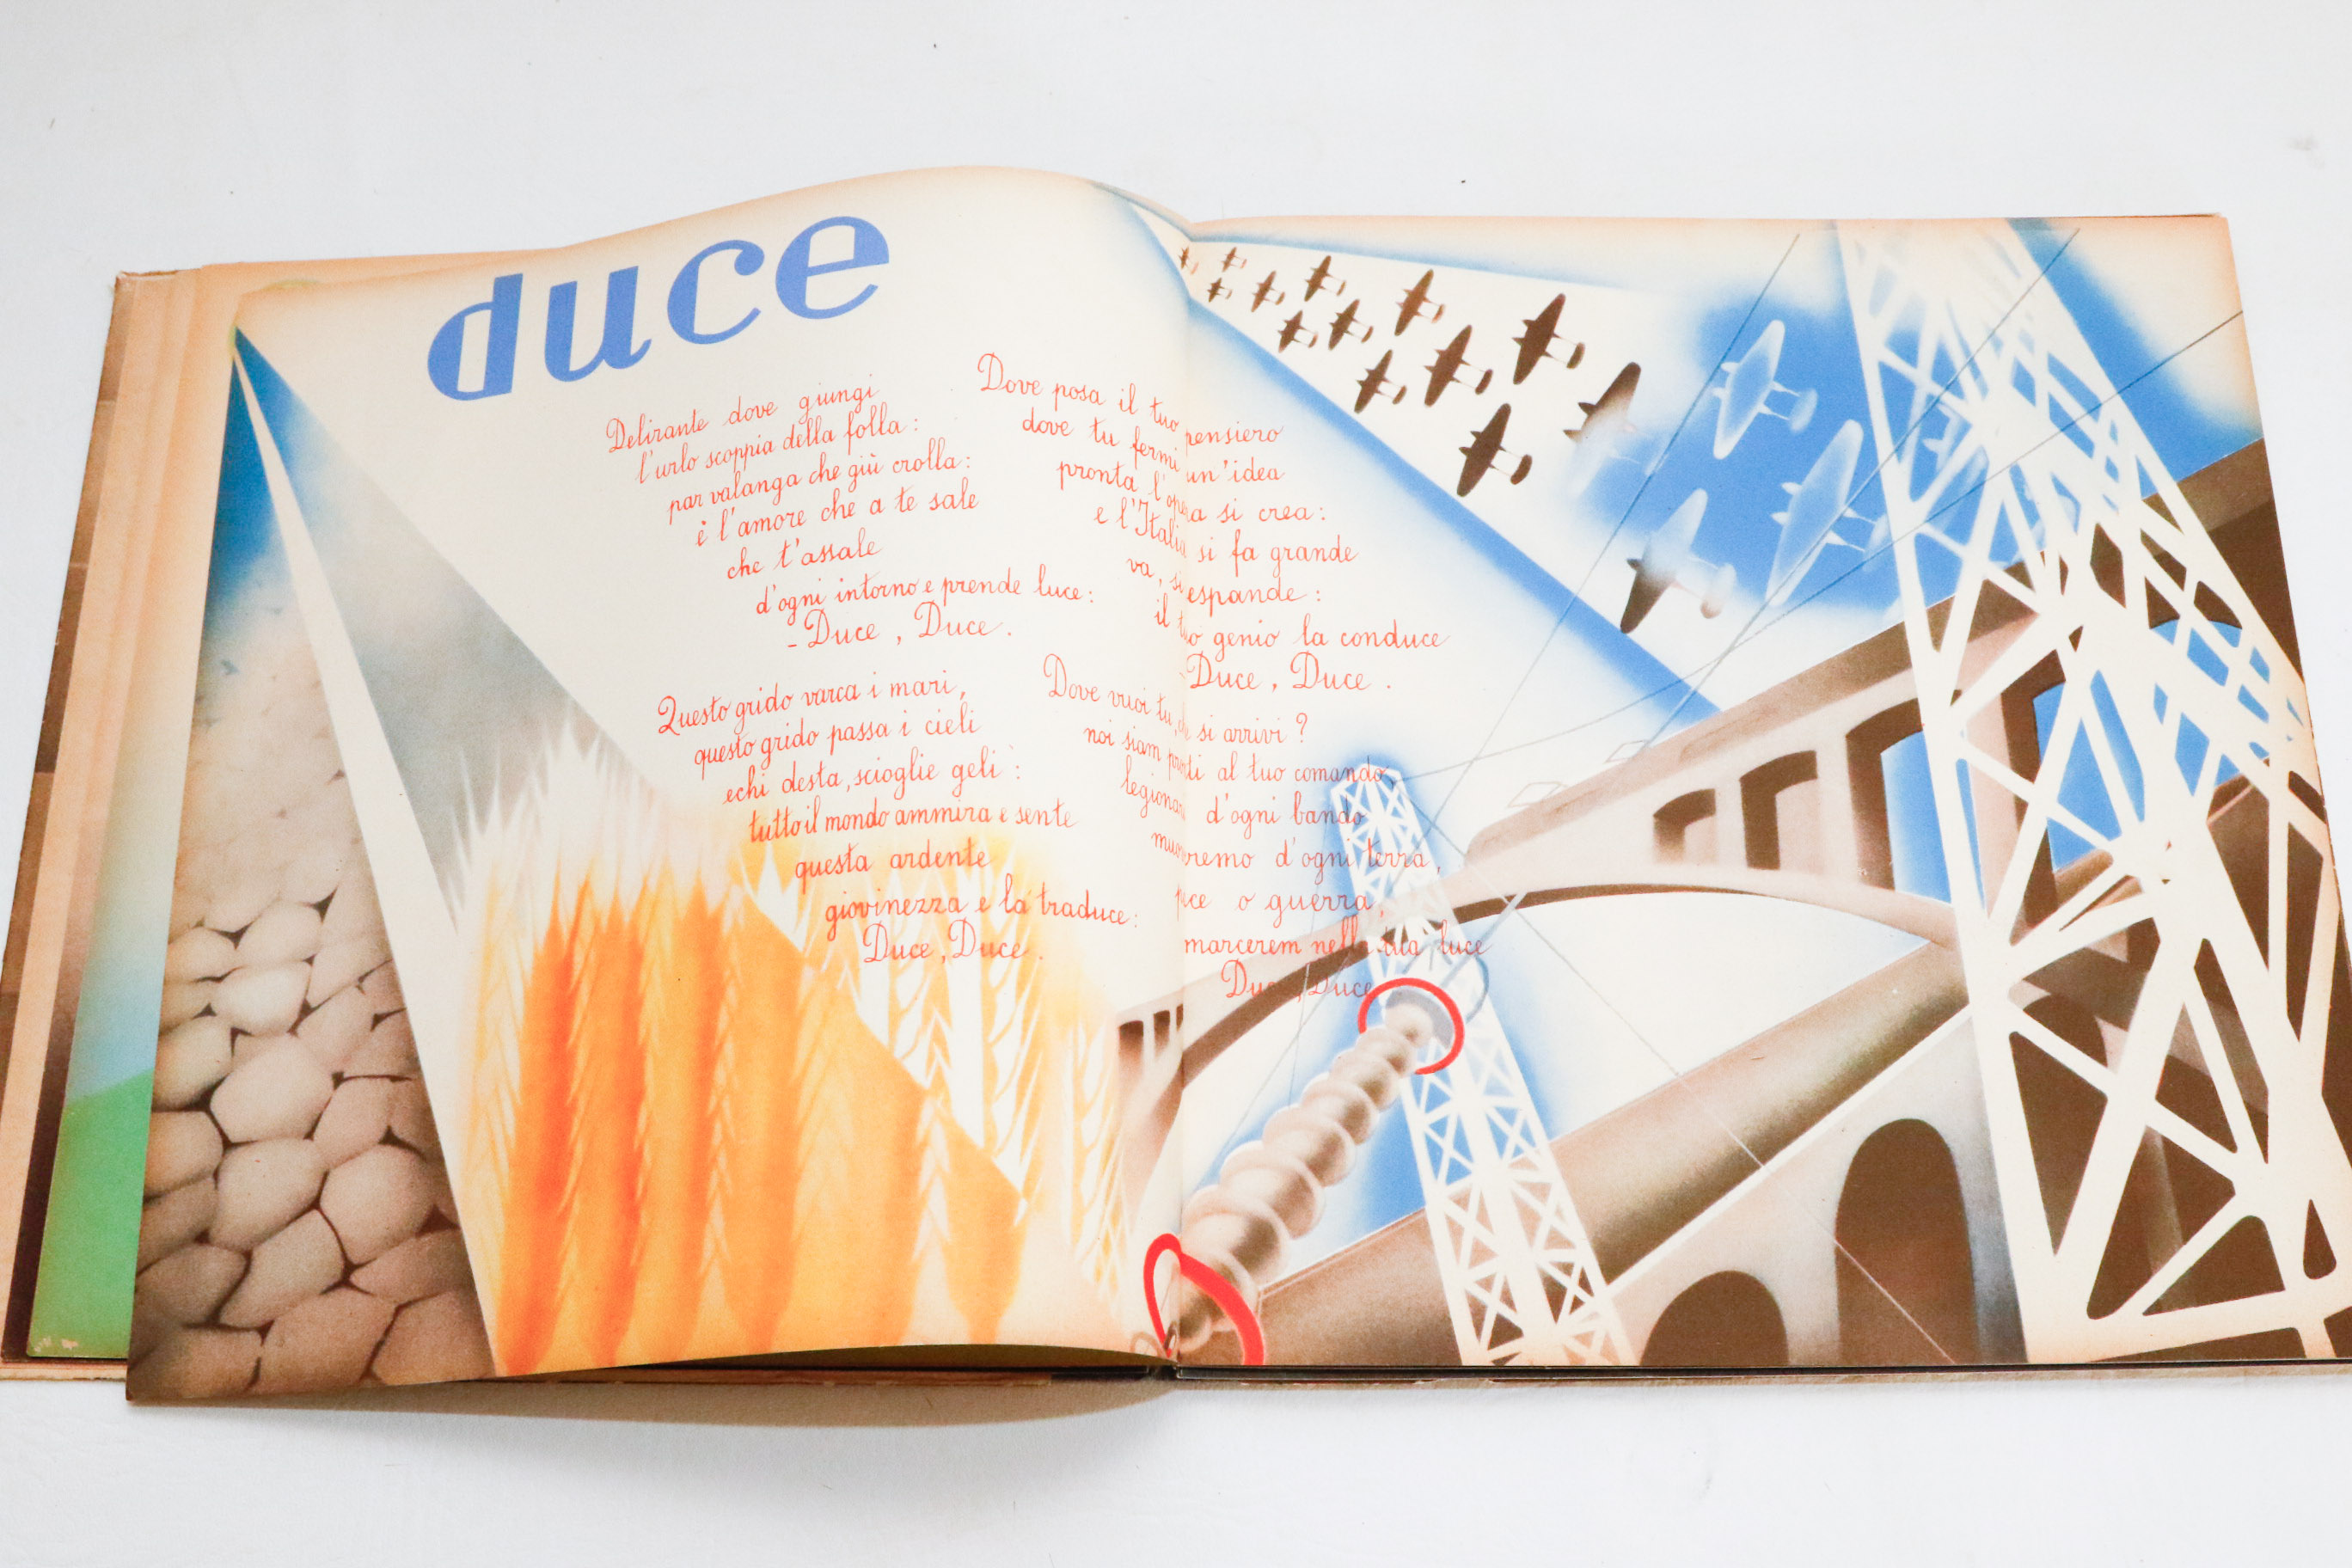 duce
Delirante dove giungi
l'urlo scoppia della folla:
par valanga che giù crolla:
è l'amore che a te sale
che t'assale
d'ogni intorno e prende luce:
- Duce, Duce.
Questo grido varca i mari,
questo grido passa i cieli
echi desta, scioglie geli:
tutto il mondo ammira e sente
questa ardente
giovinezza e la traduce:
Duce, Duce.
Dove posa il tuo pensiero
dove tu fermi un'idea
pronta l'opera si crea:
e l'Italia si fa grande
va, si espande:
il tuo genio la conduce
Duce, Duce.
Dove vuoi tu, che si arrivi?
noi siam pronti al tuo comando,
legionari d'ogni bando
muoveremo d'ogni terra,
pace o guerra,
marcerem nella tua luce
Duce, Duce